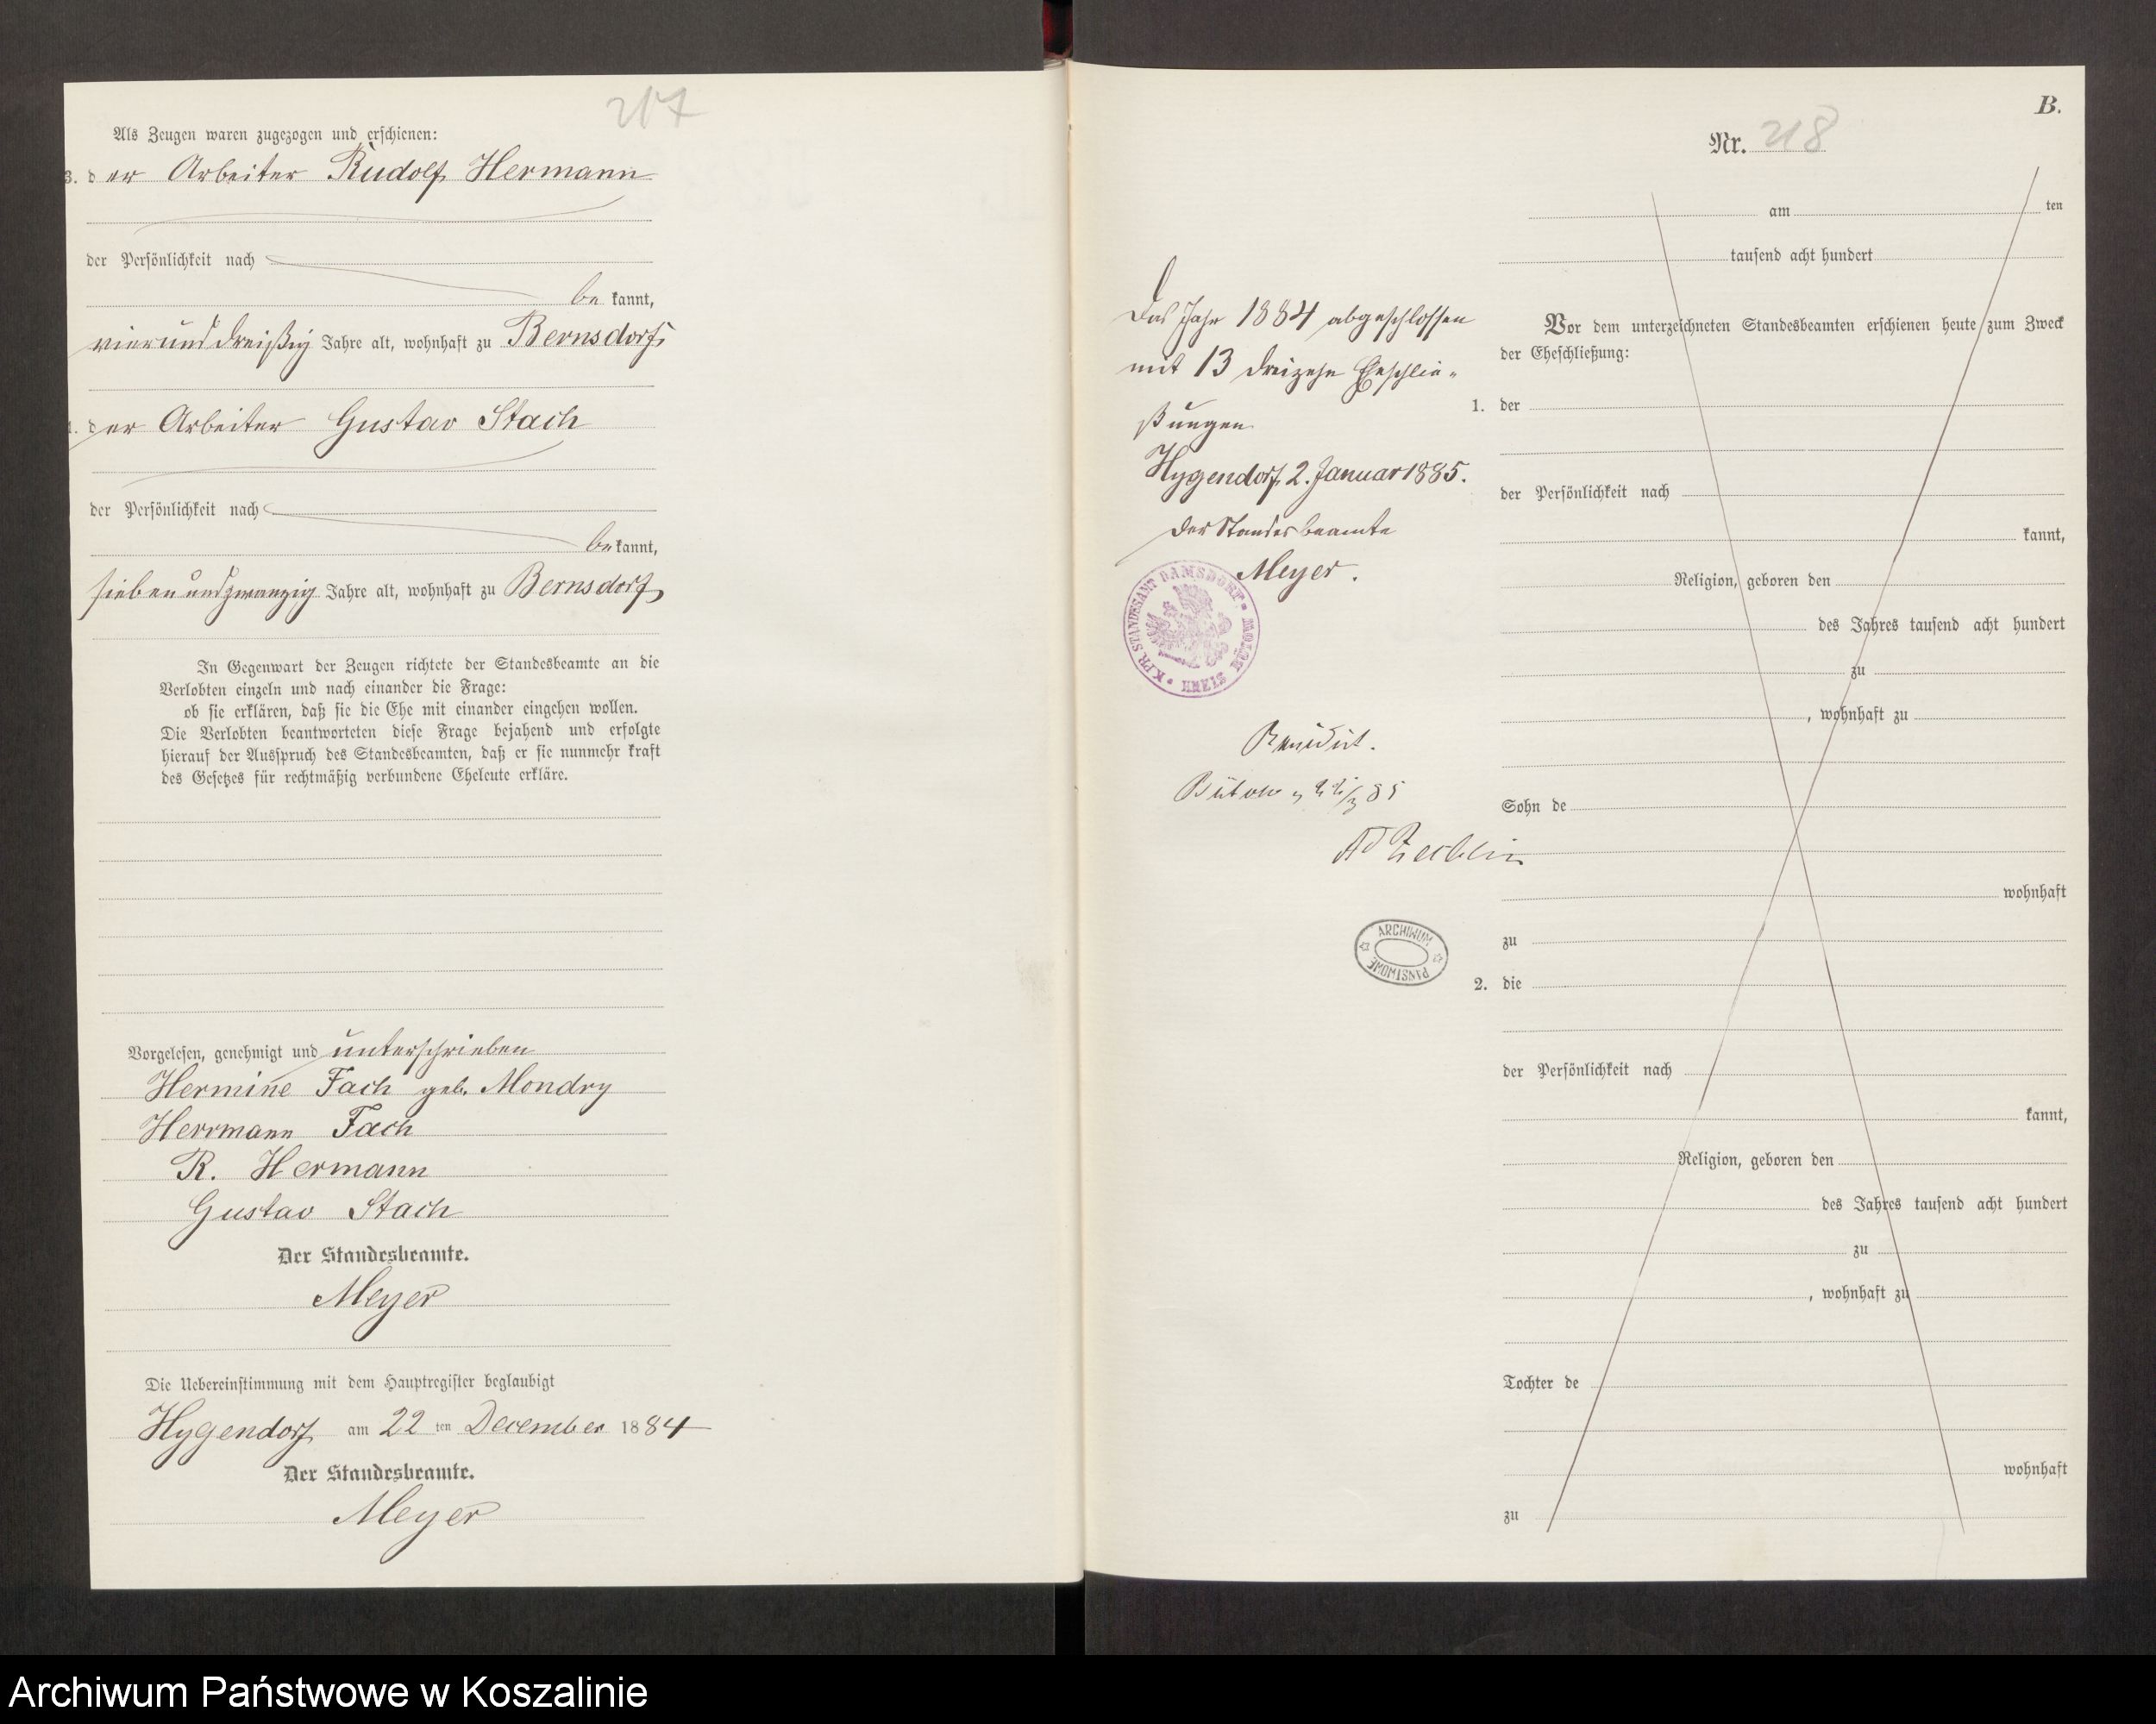 217
Als Zeugen waren zugezogen und erschienen:
3. der Arbeiter Rudolf Hermann
der Persönlichkeit nach
bekannt,
vierunddreißig Jahre alt, wohnhaft zu Bernsdorf
der Arbeiter Gustav Stach
der Persönlichkeit nach
bekannt,
siebenundzwanzig Jahre alt, wohnhaft zu Bernsdorf
In Gegenwart der Zeugen richtete der Standesbeamte an die
Verlobten einzeln und nach einander die Frage:
ob sie erklären, daß sie die Ehe mit einander eingehen wollen.
Die Verlobten beantworteten diese Frage bejahend und erfolgte
hierauf der Ausspruch des Standesbeamten, daß er sie nunmehr kraft
des Gesetzes für rechtmäßig verbundene Eheleute erkläre.
Vorgelesen, genehmigt und unterschrieben
Hermine Fach geb. Mondry
Herrmann Fach
R. Hermann
Gustav Stach
Der Standesbeamte.
Meyer
Die Uebereinstimmung mit dem Hauptregister beglaubigt
Hygendorf am 22 ten December 1884
Der Standesbeamte.
Meyer
B.
Nr. 218
am ten
tausend acht hundert
Das Jahr 1884 abgeschlossen
mit 13 dreizehn Eheschlie-
ßungen
Hygendorf, 2. Januar 1885.
Der Standesbeamte
Meyer.
K. PR. STANDESAMT DAMSDORF KREIS BÜTOW
Revidirt.
Bütow 85
ARCHIWUM PAŃSTWOWE
Vor dem unterzeichneten Standesbeamten erschienen heute zum Zweck
der Eheschließung:
1. der
der Persönlichkeit nach
kannt,
Religion, geboren den
des Jahres tausend acht hundert
zu
, wohnhaft zu
Sohn de
wohnhaft
zu
2. die
der Persönlichkeit nach
kannt,
Religion, geboren den
des Jahres tausend acht hundert
zu
, wohnhaft zu
Tochter de
wohnhaft
zu
Archiwum Państwowe w Koszalinie